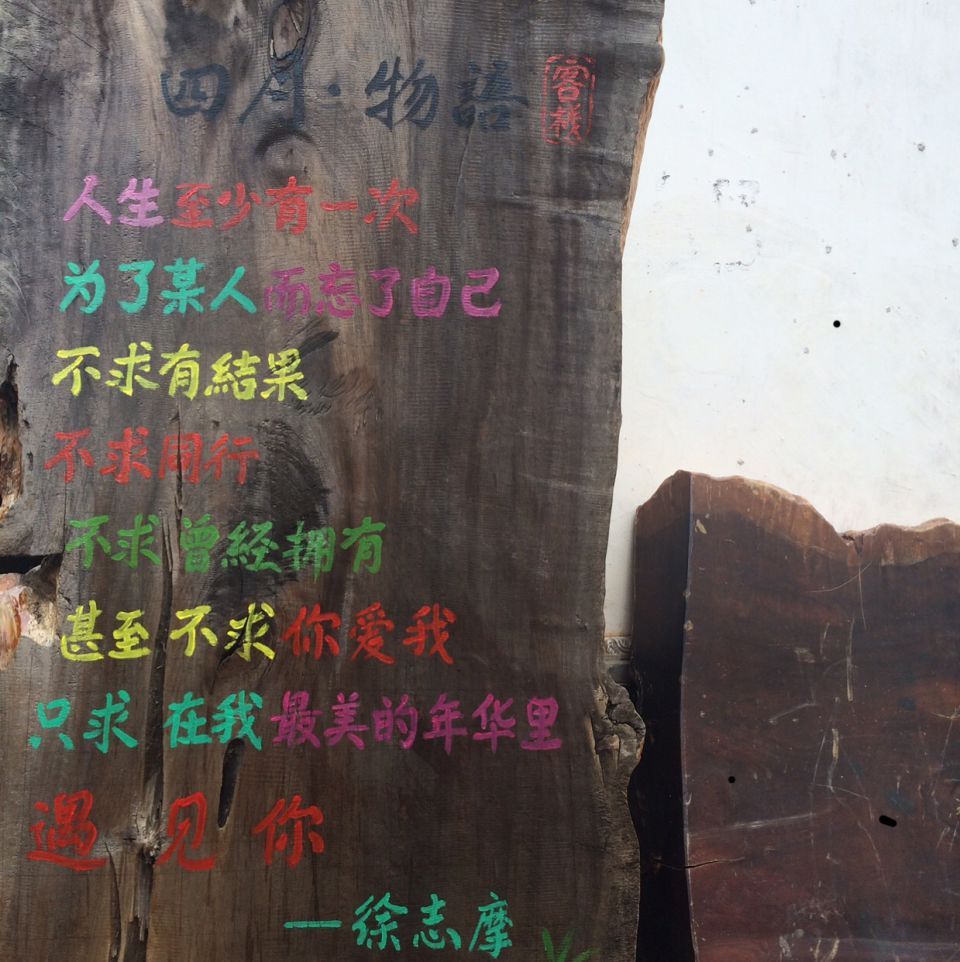 四月·物語 客栈
人生至少有一次
为了某人而忘了自己
不求有結果
不求同行
不求曾経拥有
甚至不求你爱我
只求在我最美的年华里
遇见你
—徐志摩